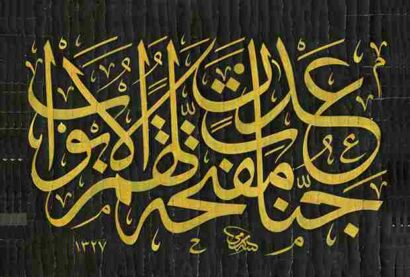 جنّات عدن مفتحة لهم الابواب
١٣٢٧